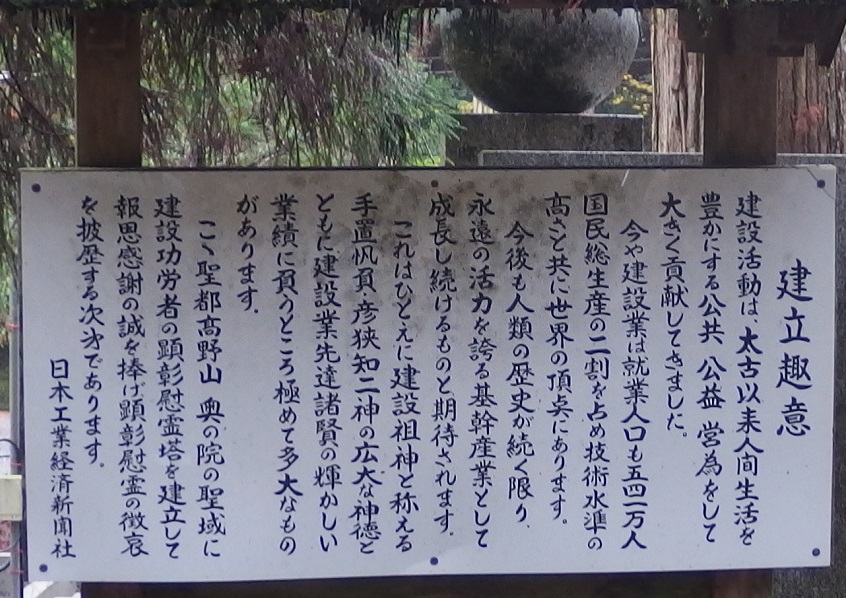 建立趣意
建設活動は、太古以来人間生活を
豊かにする公共 公益 営為をして
大きく貢献してきました。
今や建設業は就業人口も五四一万人
国民総生産の二割を占め技術水準の
高さと共に世界の頂点にあります。
今後も人類の歴史が続く限り、
永遠の活力を誇る基幹産業として
成長し続けるものと期待されます。
これはひとえに建設祖神と称える
手置帆負、彦狭知二神の広大な神徳と
ともに建設業先達諸賢の輝かしい
業績に負うところ極めて多大なもの
があります。
こゝ聖都高野山 奥の院の聖域に
建設功労者の顕彰慰霊塔を建立して
報恩感謝の誠を捧げ顕彰慰霊の微哀
を披歴する次第であります。
日本工業経済新聞社